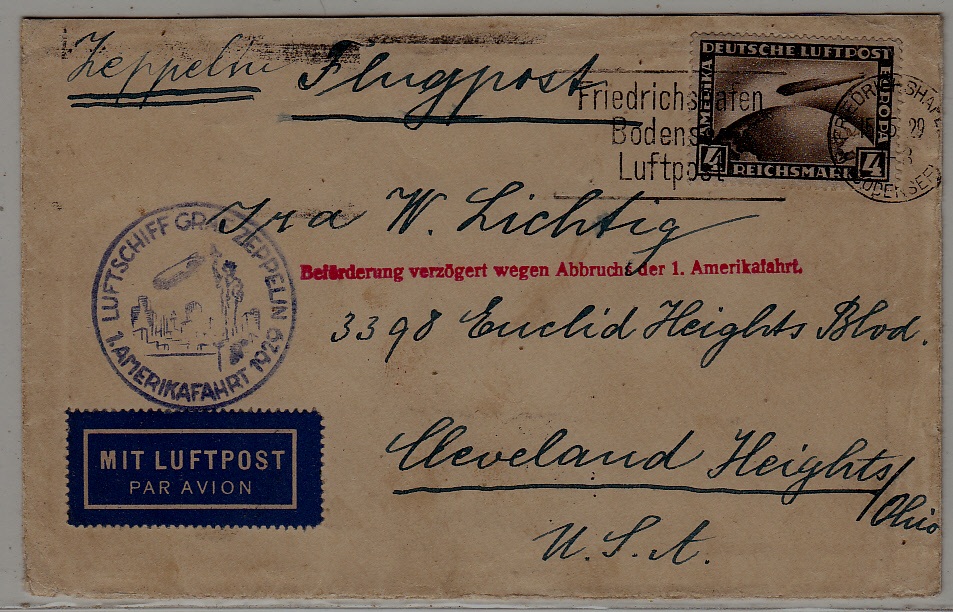 Zeppelin Flugpost
DEUTSCHE LUFTPOST
AMERIKA
EUROPA
4
4
REICHSMARK
Friedrichshafen
Bodensee
Luftpost
FRIEDRICHSHAFEN
29
BODENSEE
Ira W. Lichtig
LUFTSCHIFF GRAF ZEPPELIN
1. AMERIKAFAHRT 1929
Beförderung verzögert wegen Abbruchs der 1. Amerikafahrt.
3398 Euclid Heights Blvd.
Cleveland Heights/
Ohio
MIT LUFTPOST
PAR AVION
U.S.A.